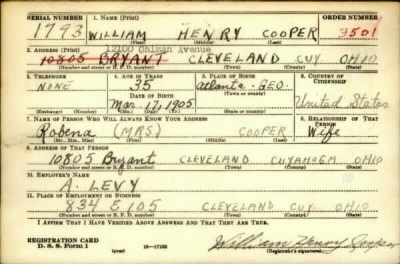 SERIAL NUMBER 1. NAME (Print) ORDER NUMBER
1793 WILLIAM HENRY COOPER 3501
(First) (Middle) (Last)
2. ADDRESS (Print) 12100 Ohlman Avenue
10805 BRYANT CLEVELAND CUY OHIO
(Number and street or R. F. D. number) (Town) (County) (State)
3. TELEPHONE 4. AGE IN YEARS 5. PLACE OF BIRTH 6. COUNTRY OF CITIZENSHIP
NONE 35 Atlanta - GEO. United States
DATE OF BIRTH (Town or county)
Mar. 17, 1905
(Exchange) (Number) (Mo.) (Day) (Yr.) (State or country)
7. NAME OF PERSON WHO WILL ALWAYS KNOW YOUR ADDRESS 8. RELATIONSHIP OF THAT PERSON
Robena (MRS) COOPER Wife
(Mr., Mrs., Miss) (First) (Middle) (Last)
9. ADDRESS OF THAT PERSON
10805 Bryant CLEVELAND CUYAHOGA OHIO
(Number and street or R. F. D. number) (Town) (County) (State)
10. EMPLOYER'S NAME
A. LEVY
11. PLACE OF EMPLOYMENT OR BUSINESS
834 E 105 CLEVELAND CUY OHIO
(Number and street or R. F. D. number) (Town) (County) (State)
I AFFIRM THAT I HAVE VERIFIED ABOVE ANSWERS AND THAT THEY ARE TRUE.
REGISTRATION CARD
D. S. S. Form 1 (over) 16-17105 William Henry Cooper
(Registrant's signature)